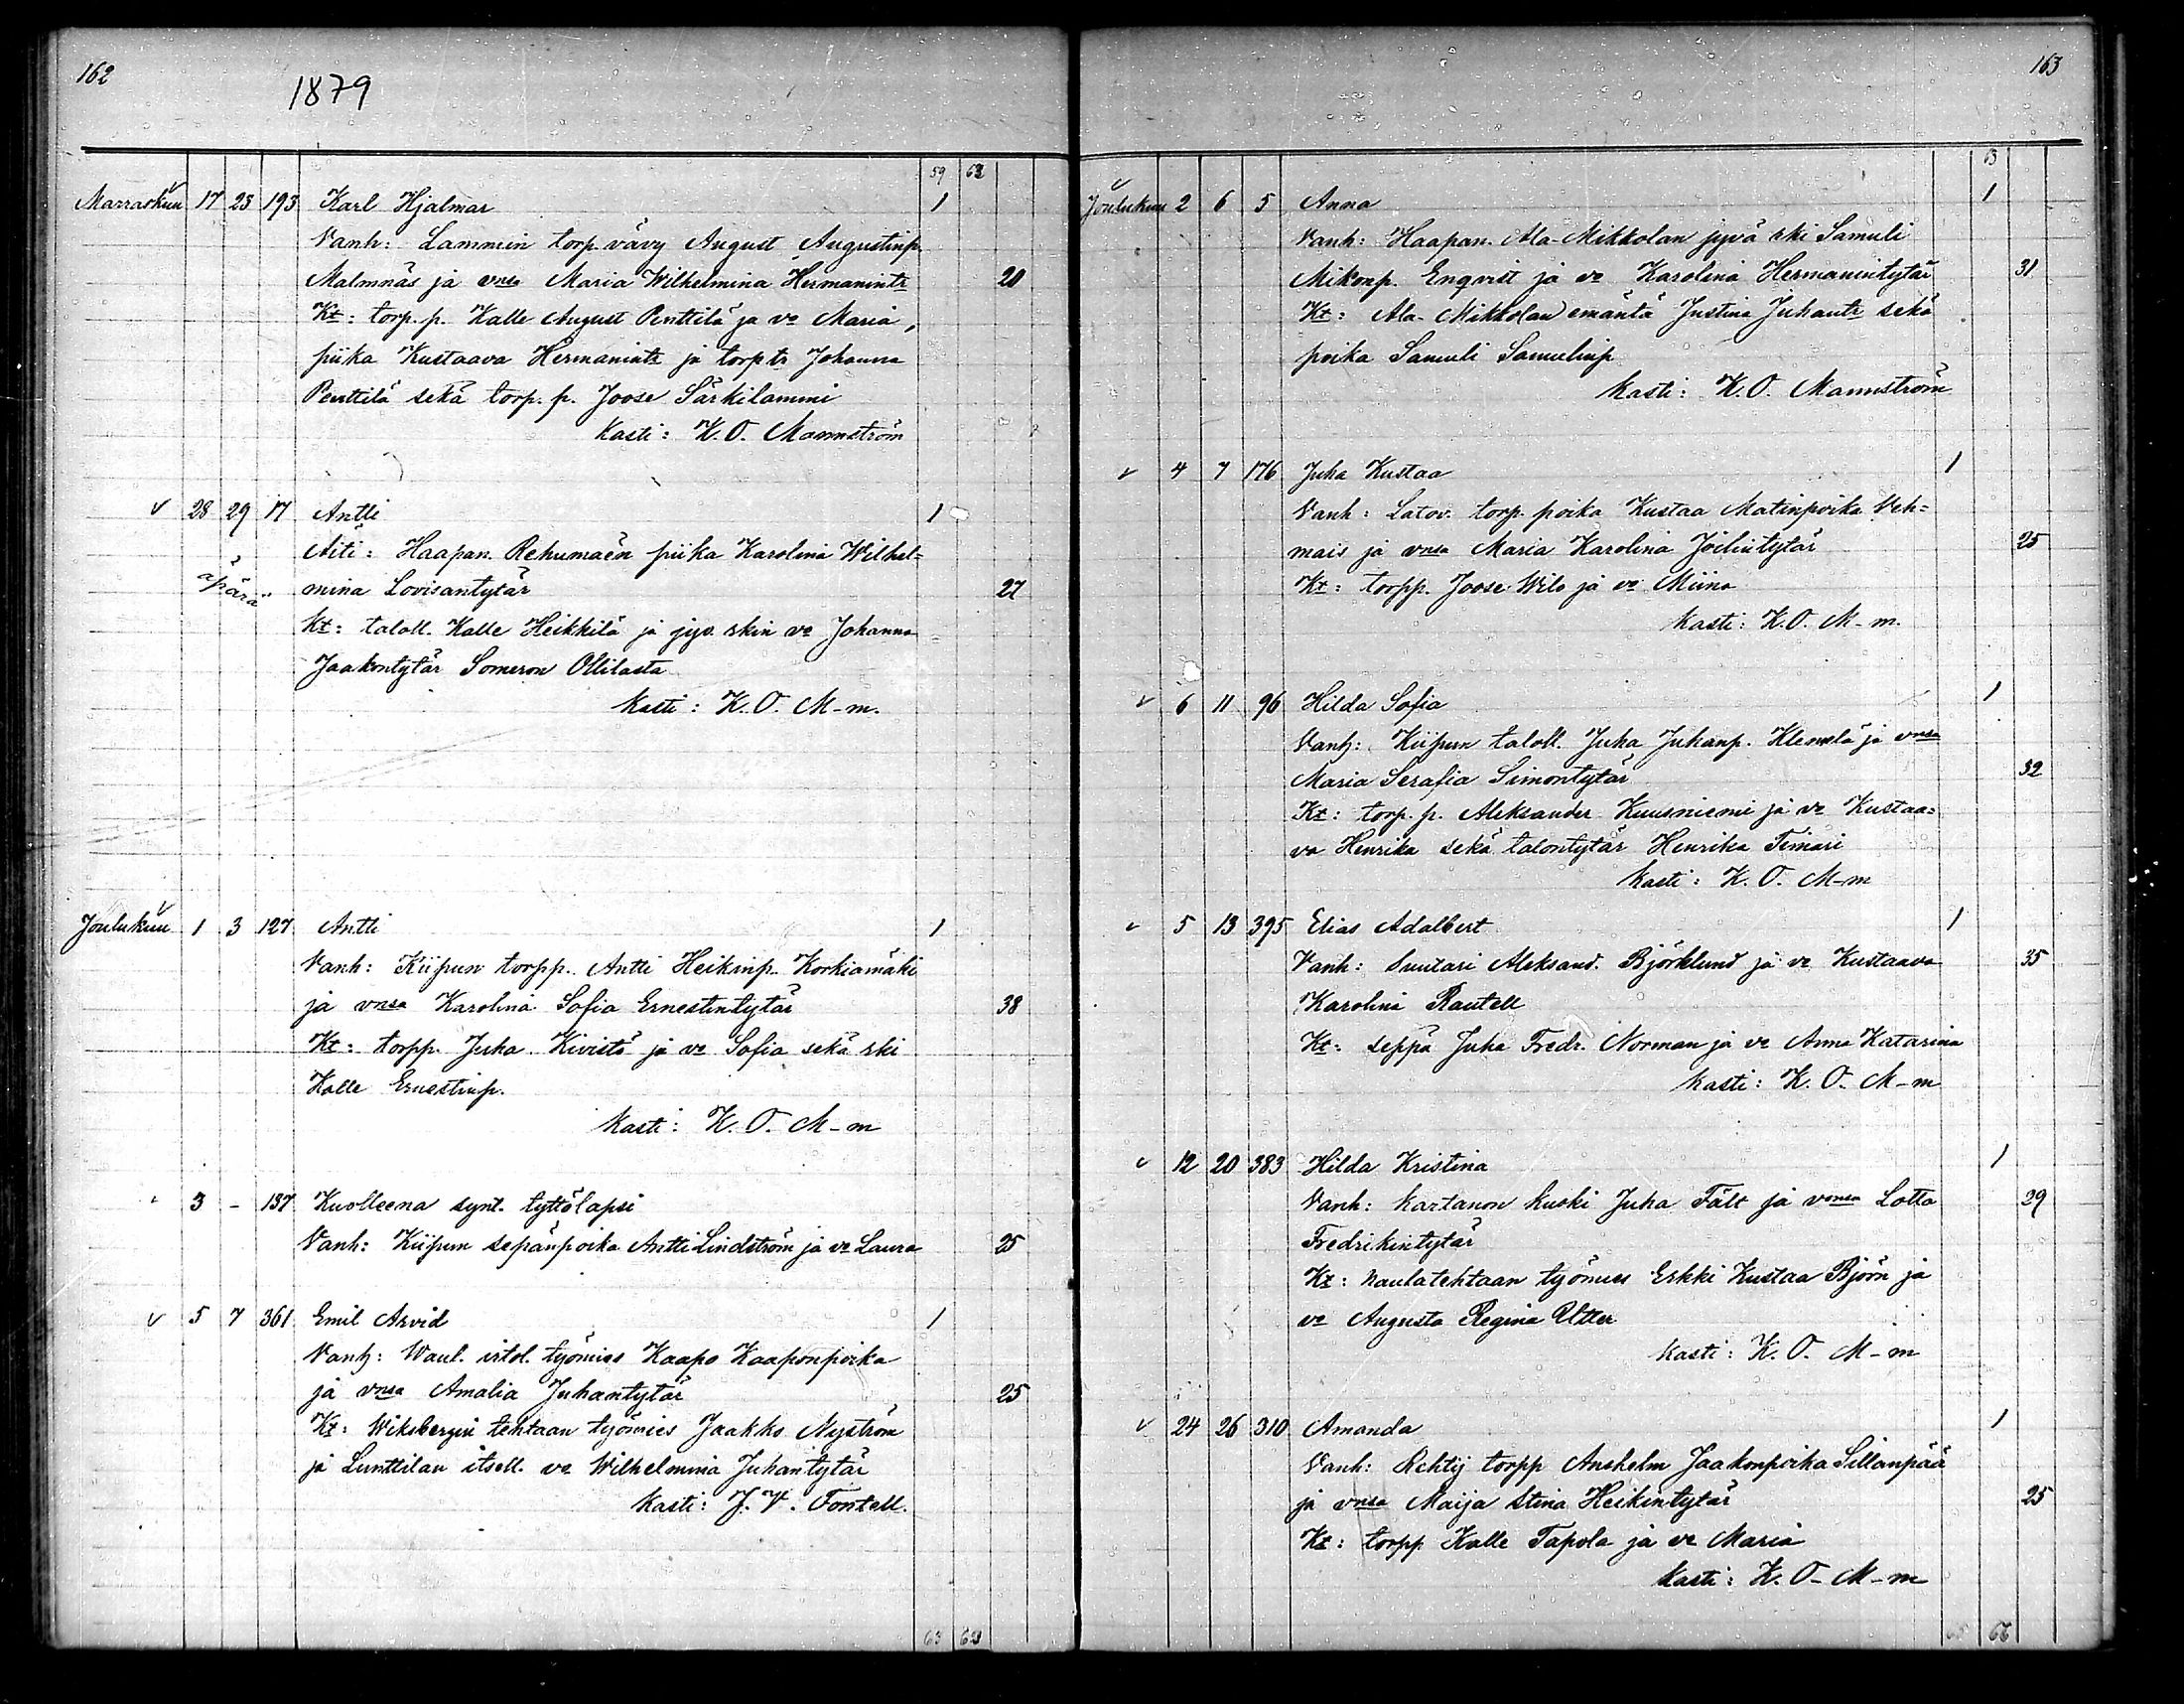 162
1879
59 62
Marraskuu 17 23 193 Karl Hjalmar 1
Vanh: Lammin torp. vävy August Augustinp.
Malmnäs ja vnsa Maria Wilhelmina Hermanintr 20
Kt: torp. p. Kalle August Penttilä ja vo Maria,
piika Kustaava Hermanintr ja torp tr Johanna
Penttilä sekä torp. p. Joose Särkilammi
Kasti: K. O. Mannström
28 29 17 Antti 1
Äiti: Haapan. Rehumäen piika Karolina Wilhel=
äpärä mina Lovisantytär 27
Kt: taloll. Kalle Heikkilä ja jyv. rkin vo Johanna
Jaakontytär Someron Ollilasta
Kasti: K. O. M-m.
Joulukuu 1 3 127 Antti 1
Vanh: Kiipun torpp. Antti Heikinp. Korkiamäki
ja vnsa Karolina Sofia Ernestintytär 38
Kt: torpp. Juha Kivistö ja vo Sofia sekä rki
Kalle Ernestinp.
Kasti: K. O. M-m
3 - 137 Kuolleena synt. tyttölapsi
Vanh: Kiipun sepänpoika Antti Lindström ja vo Laura 25
5 7 361 Emil Arvid 1
Vanh: Waul. irtol. työmies Kaapo Kaaponpoika
ja vnsa Amalia Juhantytär 25
Kt: Wiksbergin tehtaan työmies Jaakko Nyström
ja Lunttilan itsell. vo Wilhelmina Juhantytär
Kasti: J. V. Fontell.
63 63
163
63
Joulukuu 2 6 5 Anna 1
Vanh: Haapan. Ala-Mikkolan jyvä rki Samuli
Mikonp. Enqvist ja vo Karolina Hermanintytär 31
Kt: Ala-Mikkolan emäntä Justina Juhantr sekä
poika Samuli Samulinp
Kasti: K. O. Mannström
4 7 176 Juha Kustaa 1
Vanh: Latov. torp. poika Kustaa Matinpoika Veh=
mais ja vnsa Maria Karolina Joelintytär 25
Kt: torpp. Joose Wilo ja vo Miina
Kasti: K. O. M-m.
6 11 96 Hilda Sofia 1
Vanh: Kiipun taloll. Juha Juhanp. Klemelä ja vnsa
Maria Serafia Simontytär 32
Kt: torp. p. Aleksander Kuusniemi ja vo Kustaa=
va Henrika sekä talontytär Henrika Timari
Kasti: K. O. M-m
5 13 395 Elias Adalbert 1
Vanh: Suutari Aleksand. Björklund ja vo Kustaava 35
Karolina Rautell
Kt: seppä Juha Fredr. Norman ja vo Anna Katarina
Kasti: K. O. M-m
12 20 383 Hilda Kristina 1
Vanh: Kartanon kuski Juha Fält ja vnsa Lotta 29
Fredrikintytär
Kt: Naulatehtaan työmies Erkki Kustaa Björn ja
vo Augusta Regina Utter
Kasti: K. O. M-m
24 26 310 Amanda 1
Vanh: Rehtij torpp Anshelm Jaakonpoika Sillanpää
ja vnsa Maija Stina Heikintytär 25
Kt: torpp Kalle Tapola ja vo Maria
Kasti: K. O. M-m
66